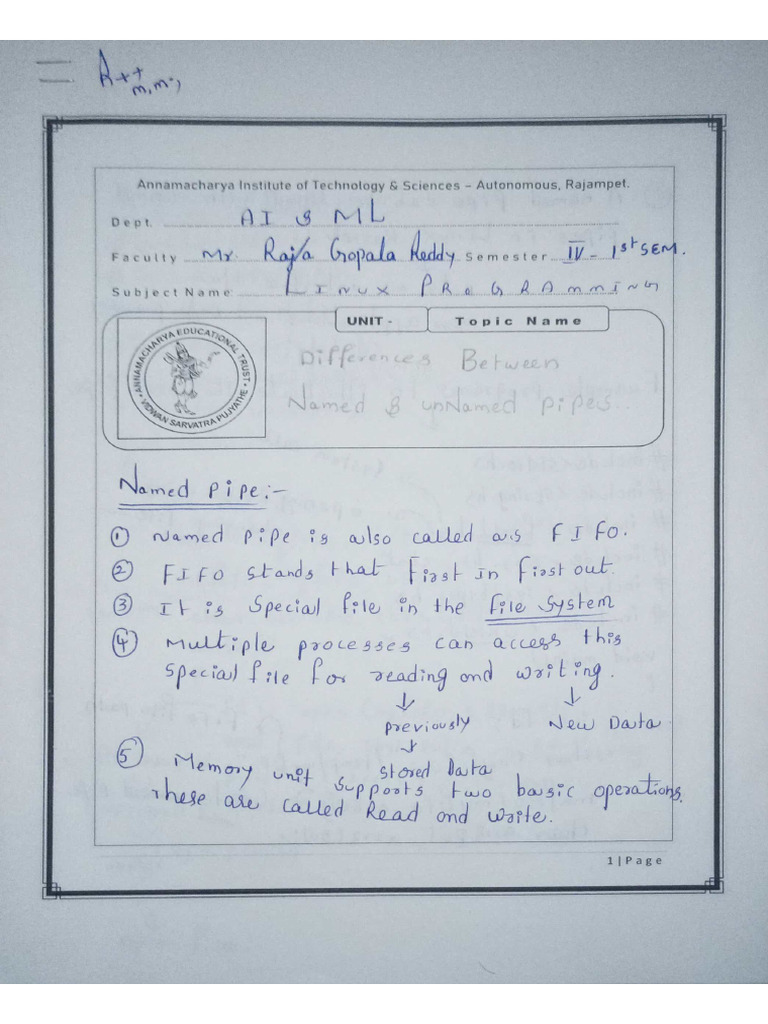 Annamacharya Institute of Technology & Sciences – Autonomous, Rajampet.
Dept. AI & ML
Faculty Mr. Raja Gopala Reddy Semester IV - 1st SEM.
Subject Name: LINUX PROGRAMMING
UNIT - Topic Name
ANNAMACHARYA EDUCATIONAL TRUST
VIDWAN SARVATRA PUJYATHE
Differences Between
Named & unNamed pipes
Named pipe:-
① Named pipe is also called as FIFO.
② FIFO stands that First In First out.
③ It is Special file in the File System
④ Multiple processes can access this
Special file for reading and writing.
↓ ↓
previously New Data
↓
stored Data
⑤ Memory unit supports two basic operations.
These are called Read and write.
1 | Page